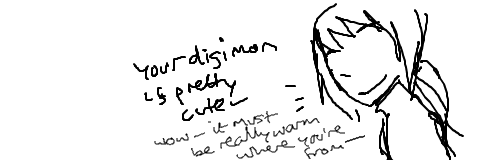 your digimon
is pretty
cute~
wow~ it must
be really warm
where you're
from~